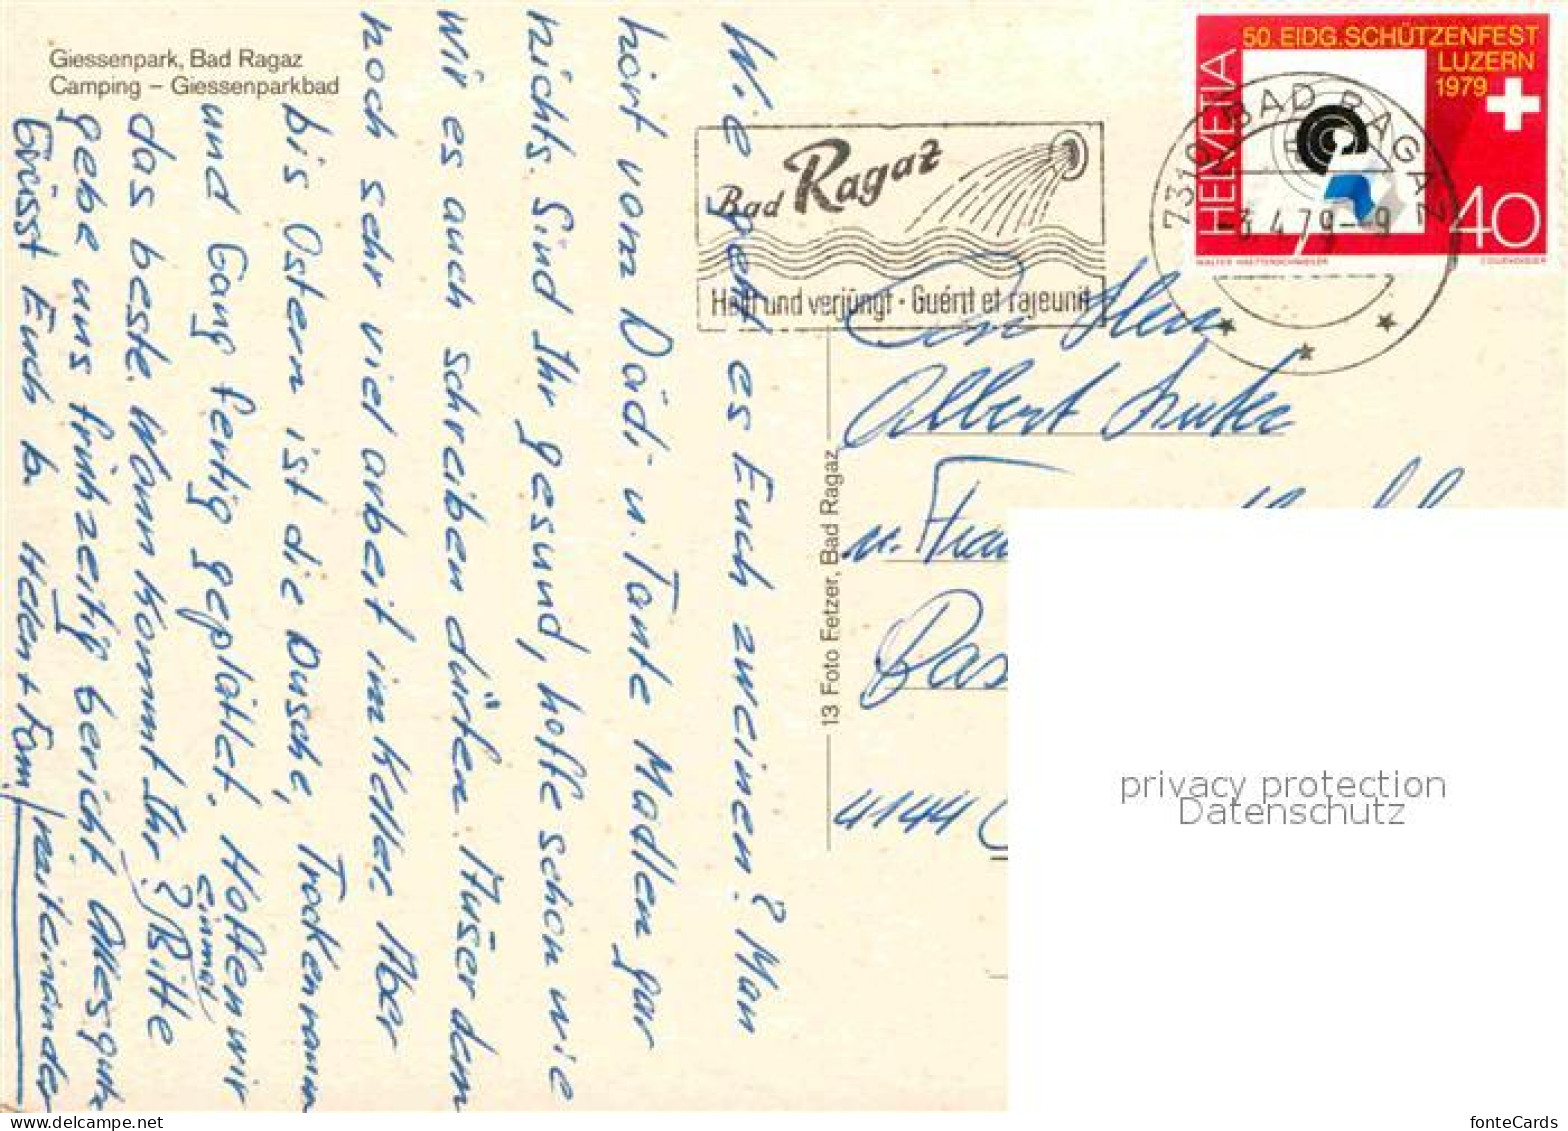 Giessenpark, Bad Ragaz
Camping – Giessenparkbad
50. EIDG. SCHÜTZENFEST
LUZERN
1979
HELVETIA
40
WALTER HAETTENSCHWEILER
COURVOISIER
7310 BAD RAGAZ
-3.4.79--9
Bad Ragaz
Heilt und verjüngt · Guérit et rajeunit
Wie geht es Euch zweinen? Man
hört vom Dädi u. Tante Madlen gar
nichts. Sind Ihr gesund, hoffe schon wie
wir es auch schreiben dürfen. Ausser dem
noch sehr viel arbeit im Keller. Aber
bis Ostern ist die Dusche, Trockenraum
und Gang fertig geplättet. Hoffen wir
einmal
das beste. Wann kommt Ihr? Bitte
gebe uns frühzeitig bericht. Alles gute
Grüsst Euch la Heden + Fam. miteinander
13 Foto Fetzer, Bad Ragaz
Herrn
Albert
u. Frau
Bas
4144
privacy protection
Datenschutz
fonteCards